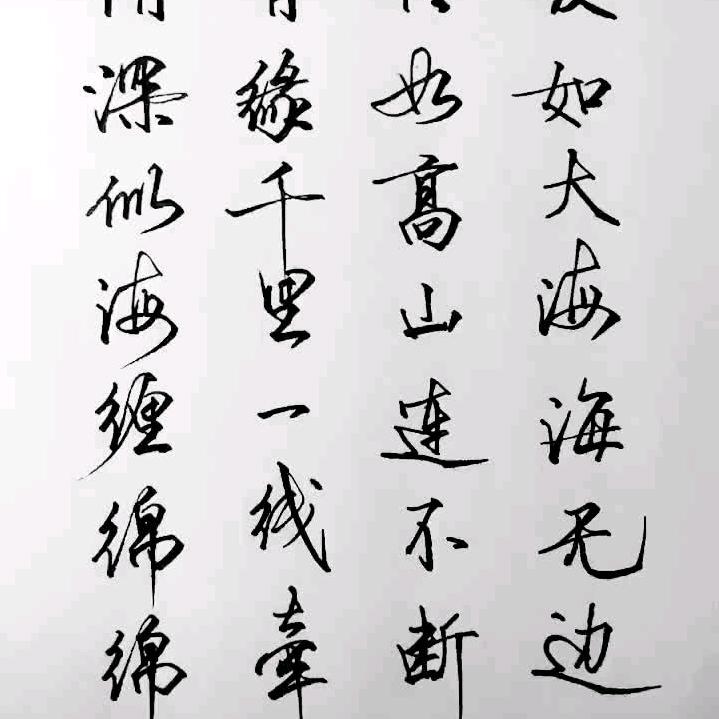 如大海海无边
如高山连不断
缘千里一线牵
深似海缠绵绵